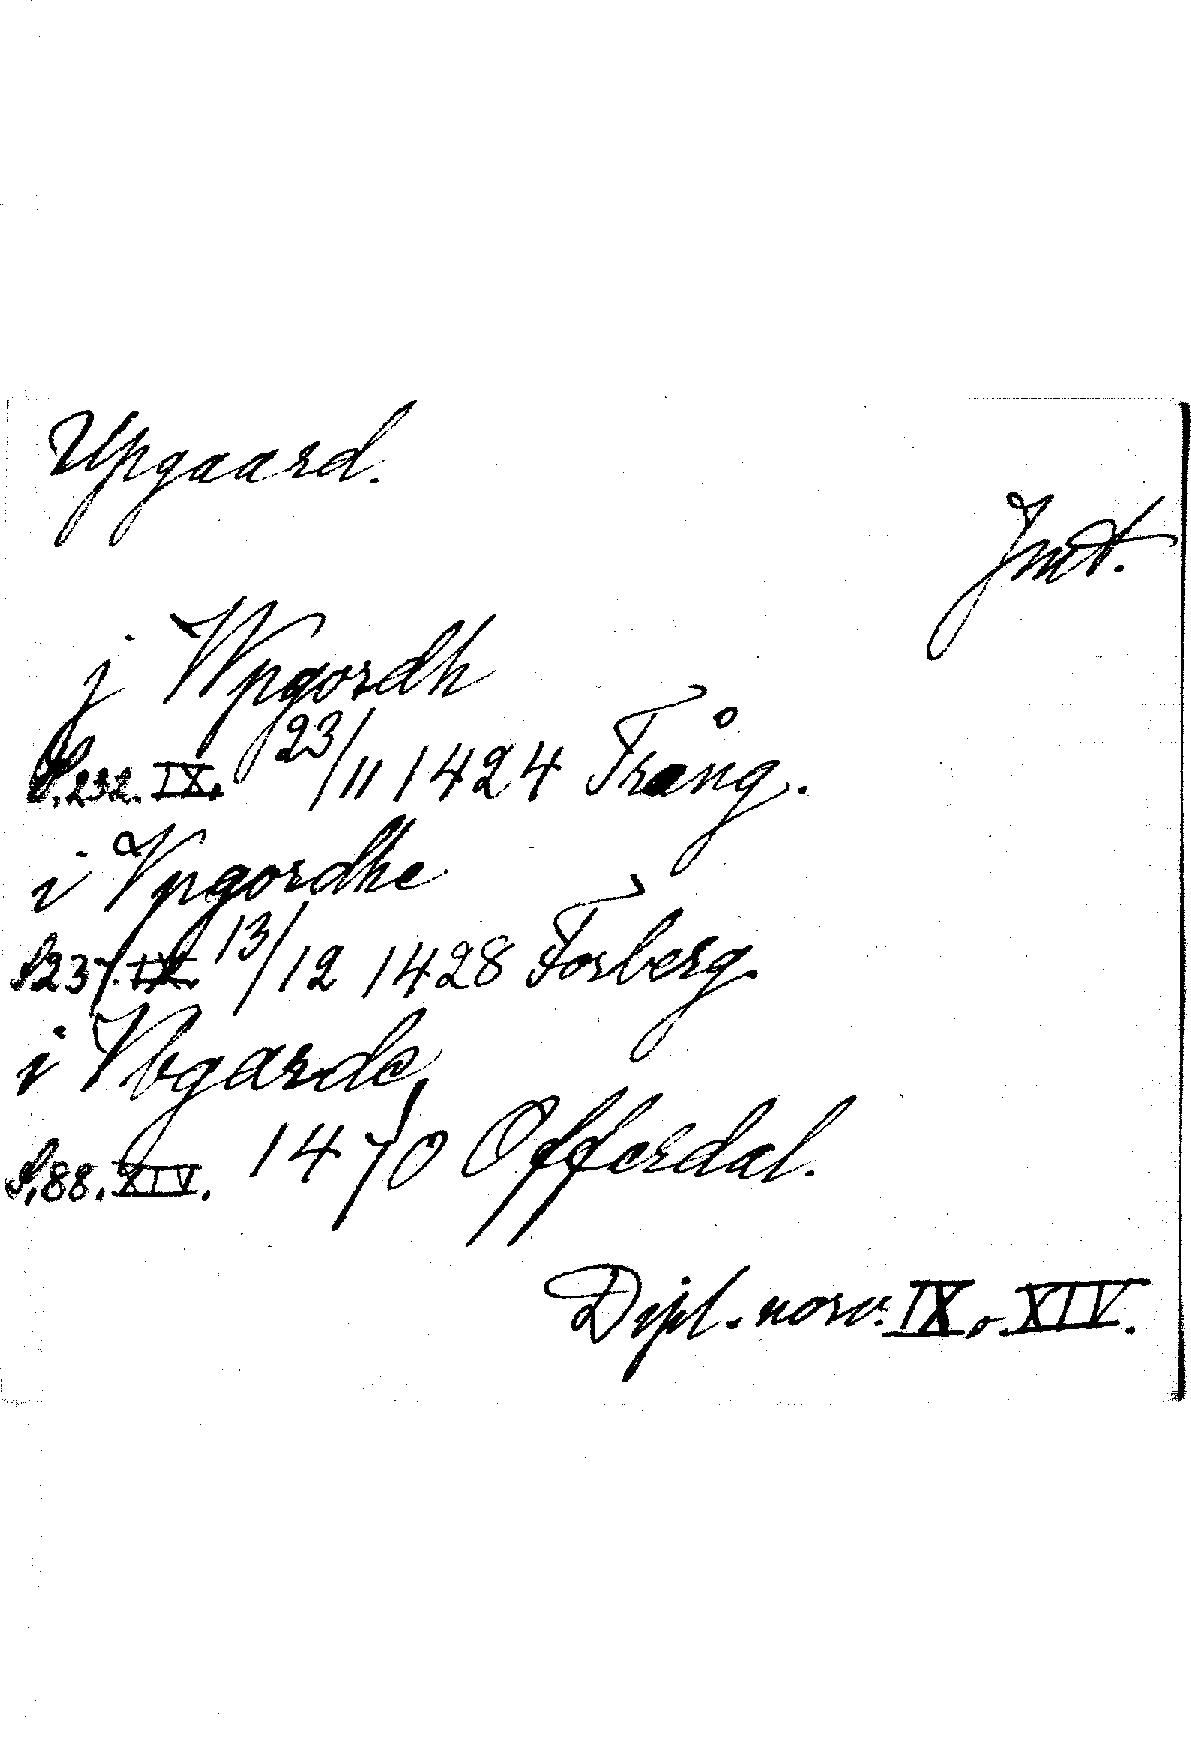 Upgaard.
Jmt.
j Wpgordh
S. 232. IX. 23/11 1424 Trång.
i Vpgordhe
S 237. IX. 13/12 1428 Forberg.
i Vbgarde
S. 88. XIV. 1470 Offerdal.
Dipl. norv. IX o. XIV.